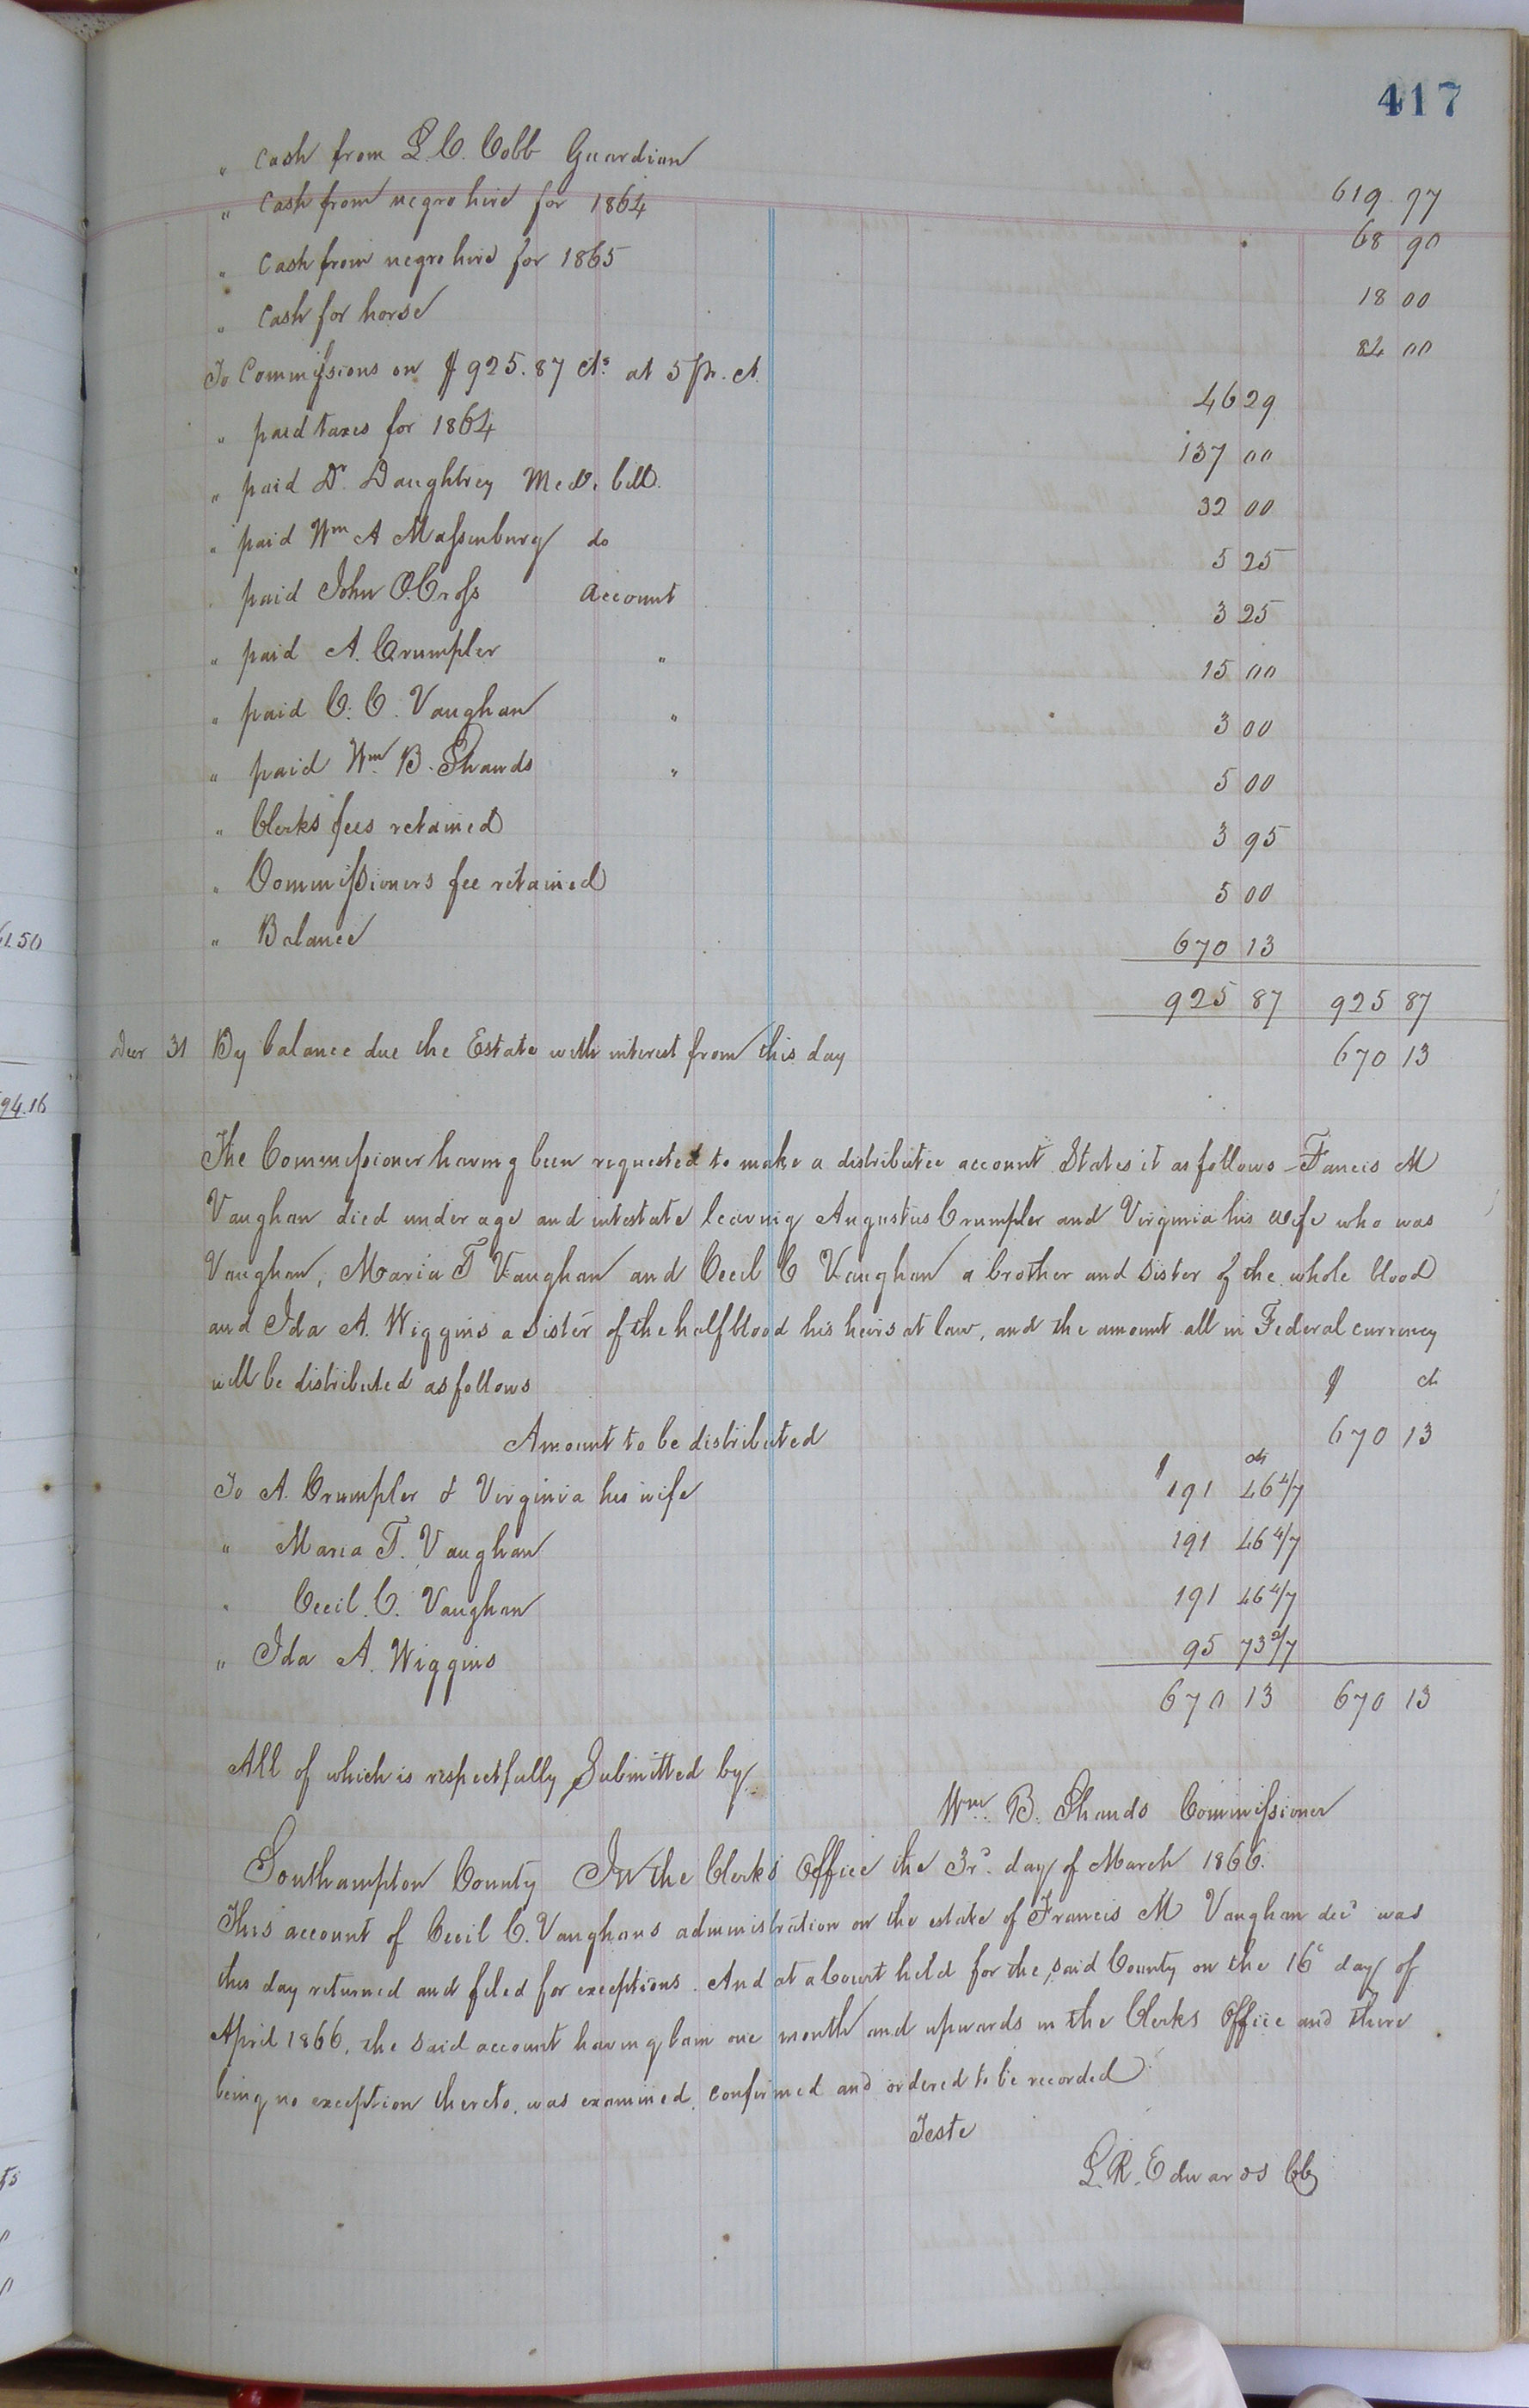 417
" Cash from L. C. Cobb Guardian 619 97
" Cash from negro hire for 1864 68 90
" Cash from negro hire for 1865 18 00
" Cash for horse 84 00
To Commissions on $ 925.87 cts at 5 pr. ct. 46 29
" paid taxes for 1864 137 00
" paid Dr. Daughtrey Med. bill 32 00
" paid Wm A Massenburg do 5 25
" paid John O. Cross Account 3 25
" paid A. Crumpler " 15 00
" paid C. C. Vaughan " 3 00
" paid Wm. B. Shands " 5 00
" Clerks fees retained 3 95
" Commissioners fee retained 5 00
" Balance 670 13
925 87 925 87
Decr 31 By balance due the Estate with interest from this day 670 13
The Commissioner having been requested to make a distributee account States it as follows - Fancis M
Vaughan died under age and intestate leaving Augustus Crumpler and Virginia his wife who was
Vaughan, Maria T Vaughan and Cecil C Vaughan a brother and Sister of the whole blood
and Ida A. Wiggins a Sister of the half blood his heirs at law, and the amount all in Federal currency
will be distributed as follows $ ct
Amount to be distributed 670 13
$ cts
To A. Crumpler & Virginia his wife 191 46 4/7
" Maria T. Vaughan 191 46 4/7
" Cecil. C. Vaughan 191 46 4/7
" Ida A. Wiggins 95 73 2/7
670 13 670 13
All of which is respectfully Submitted by
Wm. B. Shands Commissioner
Southampton County In the Clerks Office the 3rd. day of March 1866.
This account of Cecil C. Vaughans administration on the estate of Francis M Vaughan decd was
this day returned and filed for exceptions. And at a Court held for the said County on the 16th day of
April 1866, the said account having lain one month and upwards in the Clerks Office and there
being no exception thereto, was examined, confirmed and ordered to be recorded
Teste
L. R. Edwards CC
50
94.16